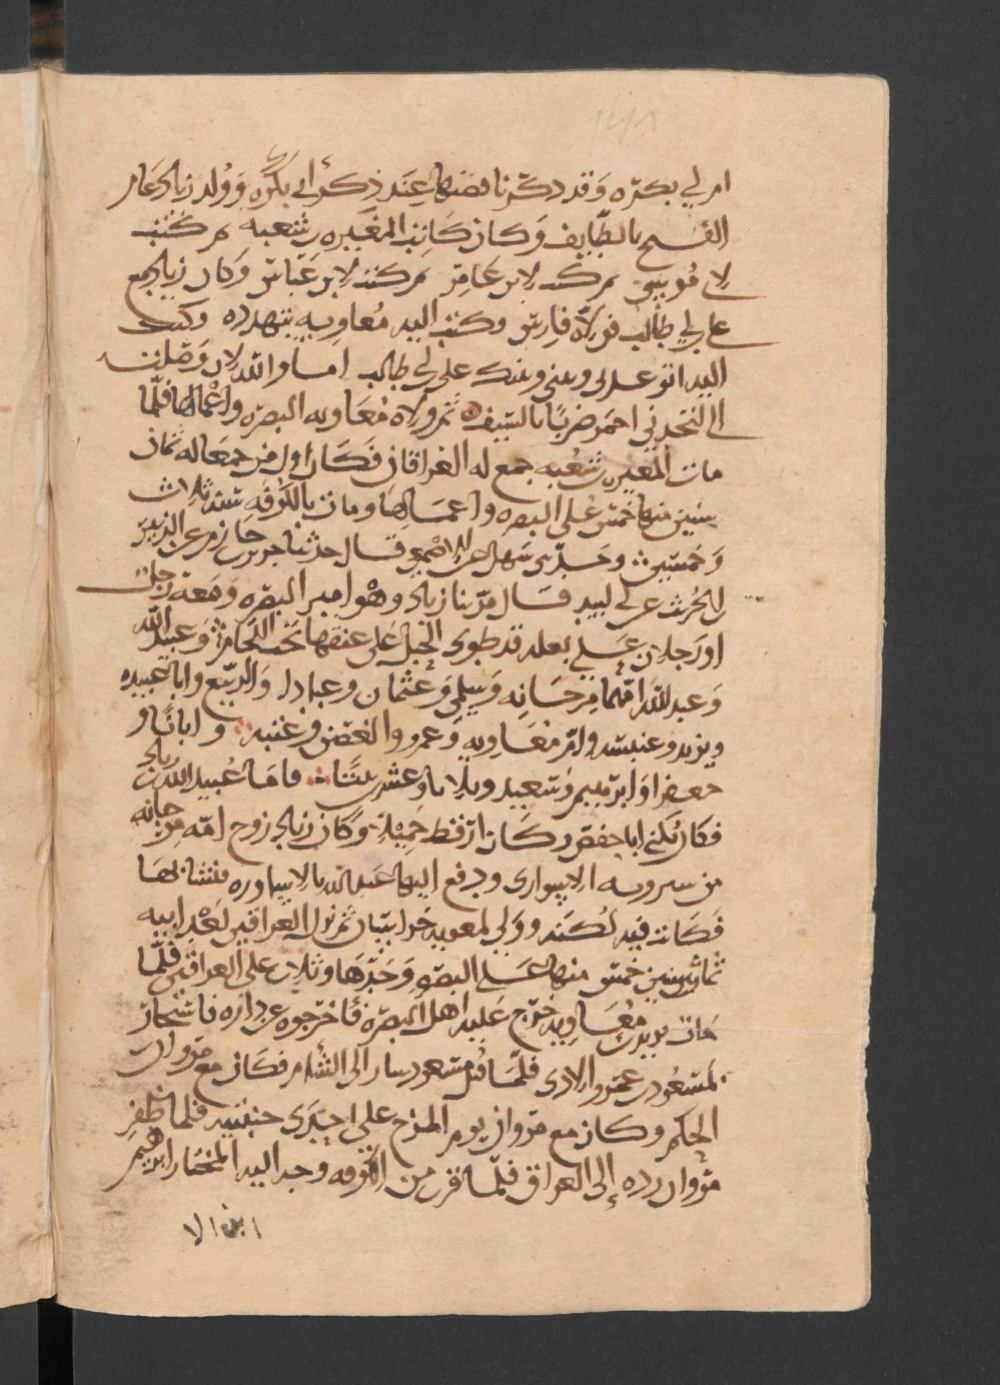 ام ابي بكره وقد ذكرنا قصتها عند ذكر ابي بكره وولد زياد عام
الفتح بالطايف وكان كاتب المغيره بن شعبه ثم كتب
لابي موسى ثم كتب لابن عامر ثم كتب لابن عباس وكان زياد مع
علي بن ابي طالب فولاه فارس وكتب اليه معاويه يتهدده وكتب
اليه اتوعدني وبيني وبينك علي بن ابي طالب اما والله لان وصلت
الي لتجدني احمر ضرابا بالسيف ثم ولاه معاويه البصره واعمالها فلما
مات المغيره بن شعبه جمع له العراقان فكان اول من جمعا له ثمان
سنين منها خمس على البصره واعمالها ومات بالكوفه سنه ثلاث
وخمسين وحدثني سهل عن الاصمعي قال حدثنا جرير بن حازم عن الزبير
بن الحرث عن ابي لبيد قال مر بنا زياد وهو امير البصره ومعه رجل
او رجلان على بغله قد طوى الحبل على عنقها تحت اللجام وعبيد الله
وعبد الله امهما مرجانه وسلمى وعثمان وعبادا والربيع وابا عبيده
ويزيد وعنبسه وام معاويه وعمرو والغصن وعتبه وابانا و
جعفرا وابرهيم وسعيد وبلابا وعشرين بنتا فاما عبيد الله بن زياد
فكان يكنى ابا حفص وكان ارقط جميلا وكان زياد زوج امه مرجانه
من سرويه الاسواري ودفع اليها عبد الله بالاساوره فنشا بها
فكانت فيه لكنه وولي لمعويه خراسان ثم ولي العراقين بعد ابيه
ثمان سنين خمس منها على البصره وحدها وثلاث على العراقين فلما
مات يزيد بن معاويه خرج عليه اهل البصره فاخرجوه عن داره فاستجار
بمسعود بن عمرو الازدي فلما قتل مسعود سار الى الشام فكان مع مروان بن
الحكم وكان مع مروان يوم المرج على احدى جنبتيه فلما ظفر
مروان رده الى العراق فلما قرب من الكوفه وجه اليه المختار ابرهيم
ابن الا